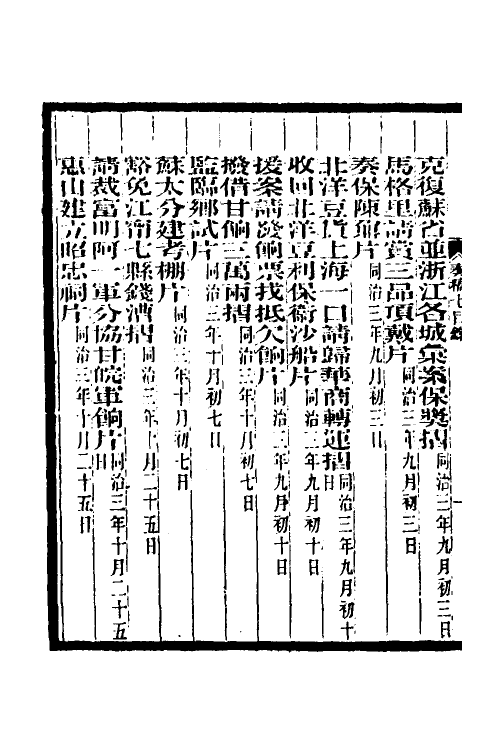 奏稿七目錄
一
克復蘇省並浙江各城彙案保獎摺同治三年九月初三日
馬格里請賞三品頂戴片同治三年九月初三日
奏保陳鼐片同治三年九月初三日
北洋豆貨上海一口請歸華商轉運摺同治三年九月初十日
收回北洋豆利保衞沙船片同治三年九月初十日
援案請發餉票找抵欠餉片同治三年九月初十日
撥借甘餉三萬兩摺同治三年十月初七日
監臨鄉試片同治三年十月初七日
蘇太分建考棚片同治三年十月初七日
豁免江甯七縣錢漕摺同治三年十月二十五日
請裁富明阿一軍分協甘皖軍餉片同治三年十月二十五日
惠山建立昭忠祠片同治三年十月二十五日